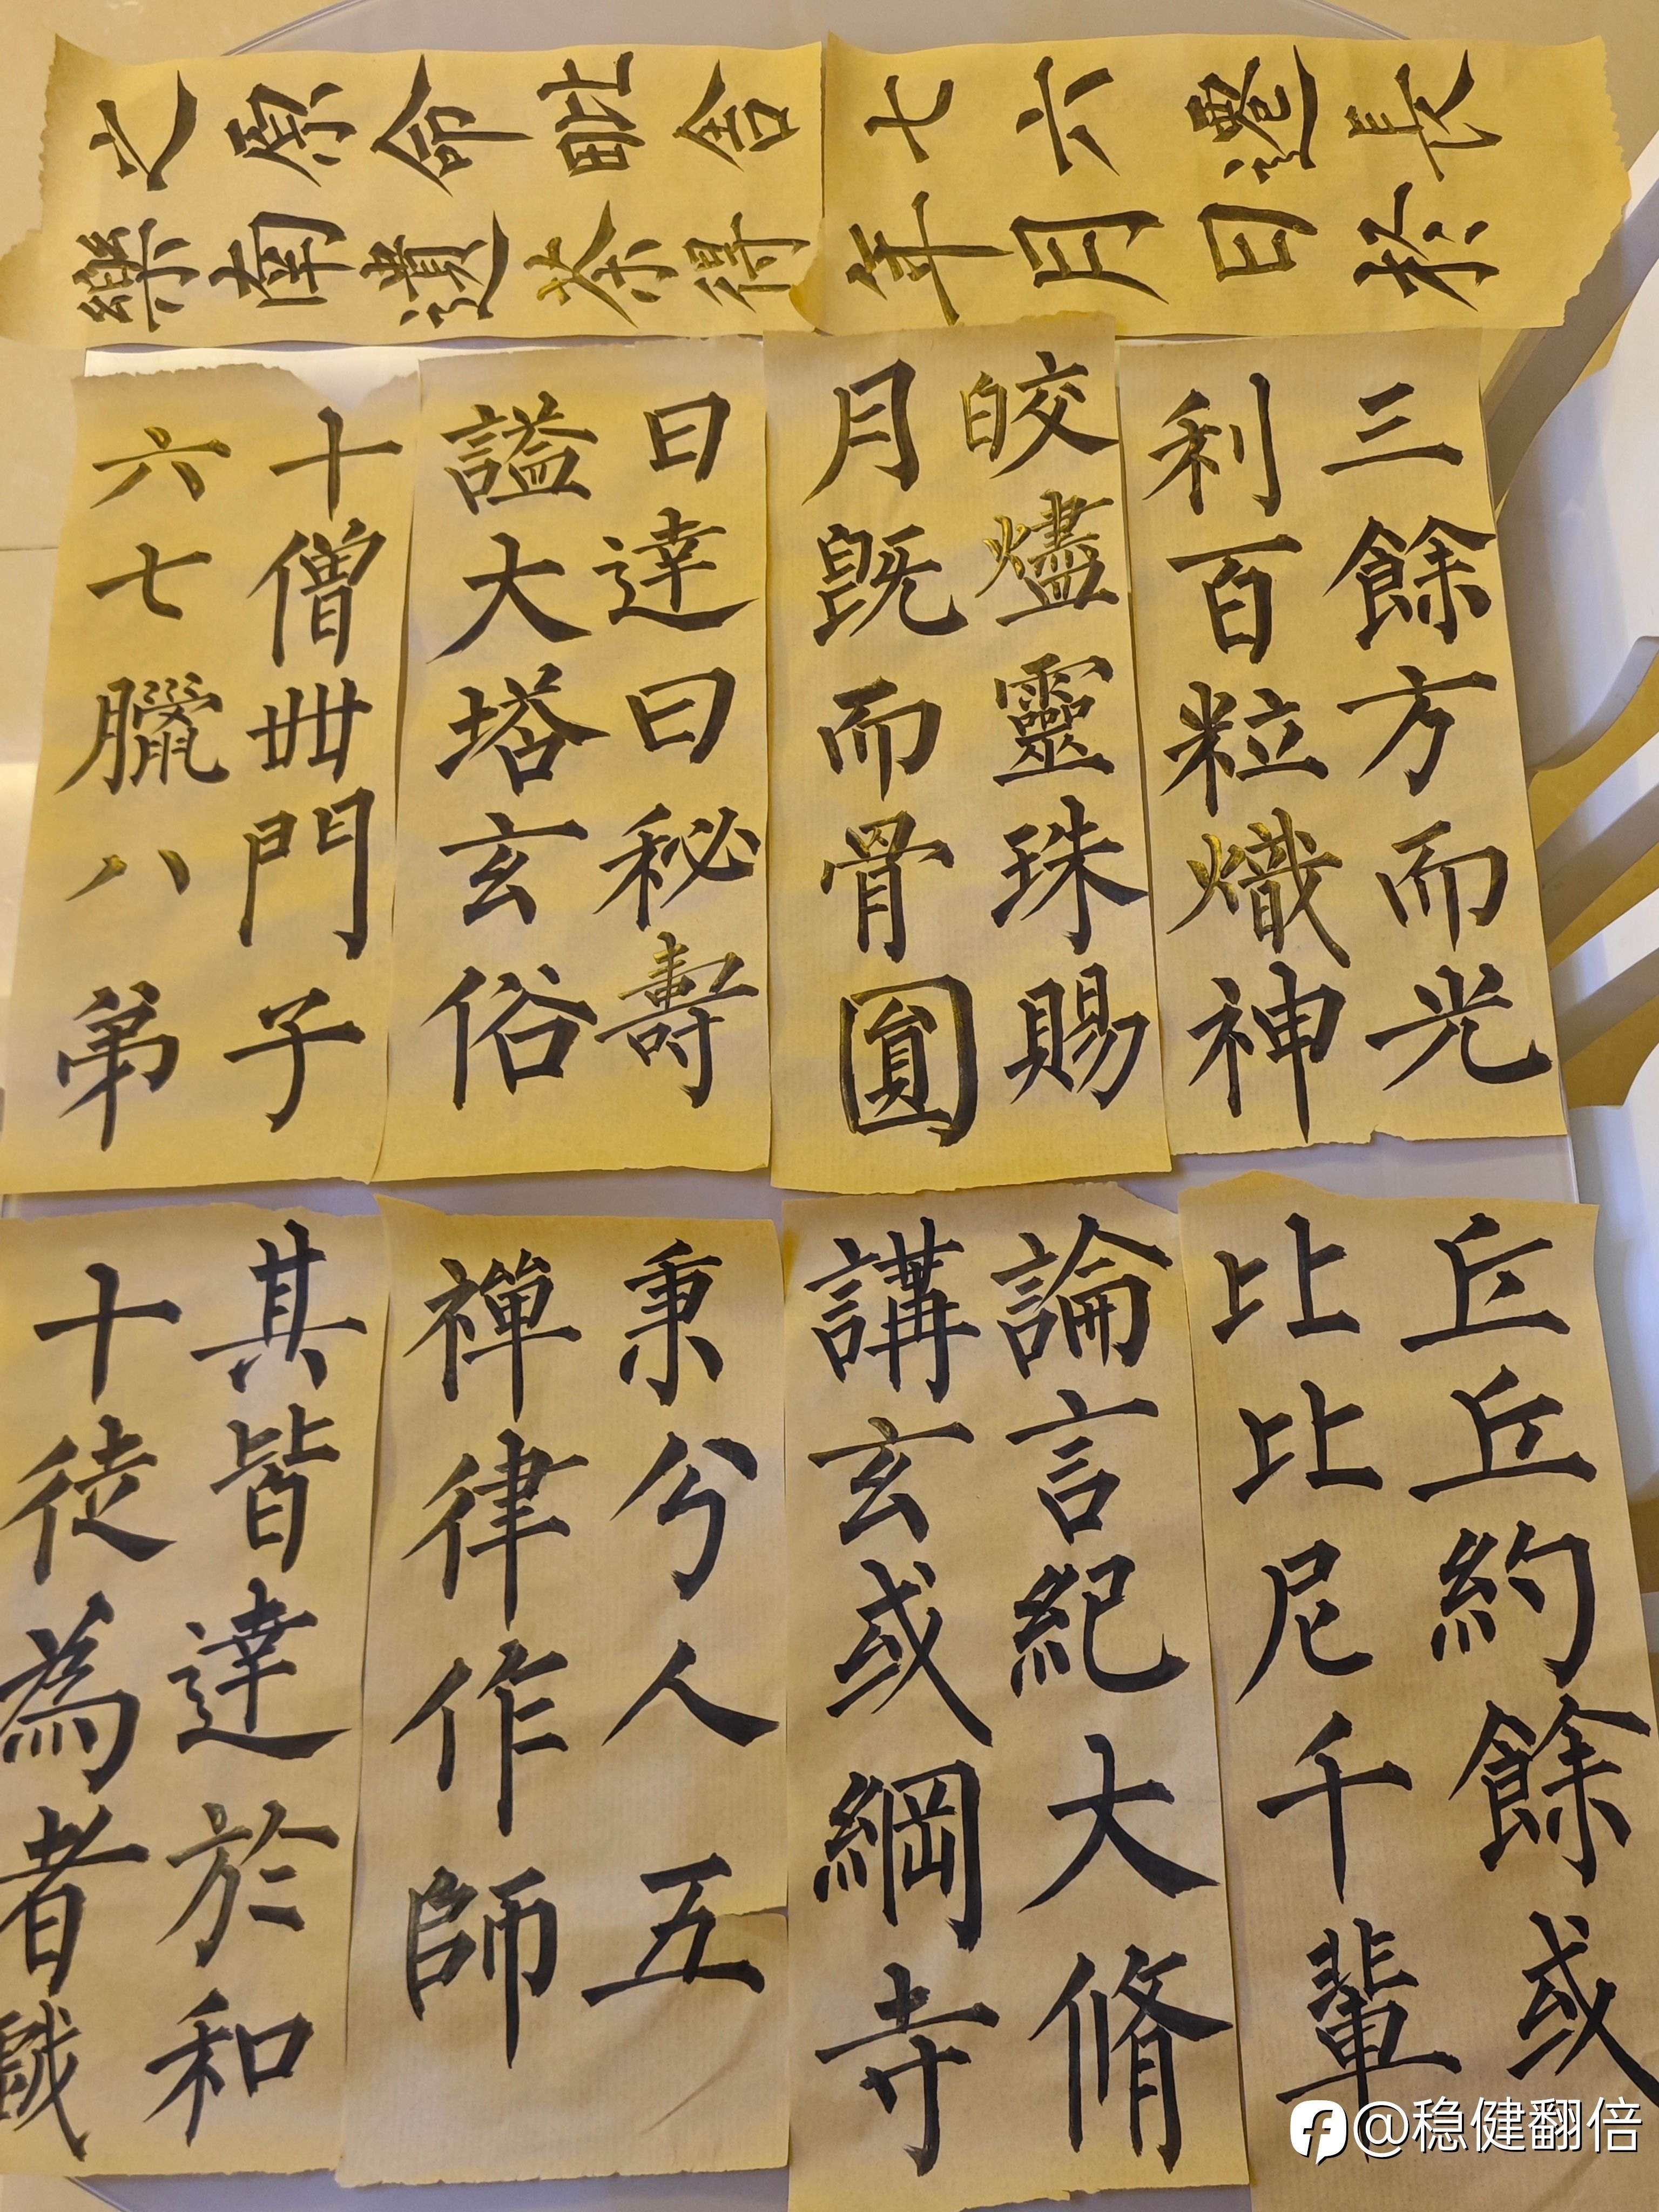 年七
月六
日遷
於長
樂之
南原
遺命
荼毗
得舍
利三
百餘
粒方
熾而
神光
月皎
既燼
而靈
骨珠
圓賜
諡曰
大達
塔曰
玄秘
俗壽
六十
七僧
臘卌
八門
弟子
比丘
比丘
尼約
千餘
輩或
講論
玄言
或紀
綱大
寺脩
禪秉
律分
作人
師五
十其
徒皆
為達
者於
戲和
@稳健翻倍